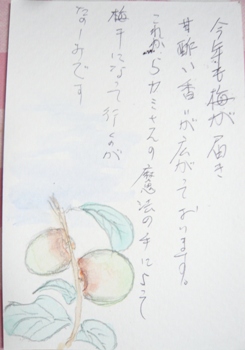 今年も梅が届き
甘酢い香りが広がっております。
これからカミさんの魔法の手によって
梅干になって行くのが
たのしみです